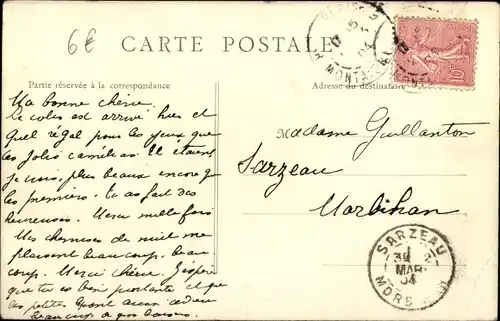 6€
CARTE POSTALE
Partie réservée à la correspondance
Adresse du destinataire
Ma bonne chérie
Le colis est arrivé hier et
quel régal pour les yeux que
ces jolis camélias. Il étaient
je crois, plus beaux encore que
les premiers. tu as fait des
heureuses. Merci mille fois
Mes chemises de nuit me
plaisent beaucoup, beau
coup. Merci chérie. J'espère
que tu es bien portante et que
les petites sont aussi. adieu
beaucoup de gros baisers.
Madame Guillanton
Sarzeau
Morbihan
10
SARZEAU
MAR
04